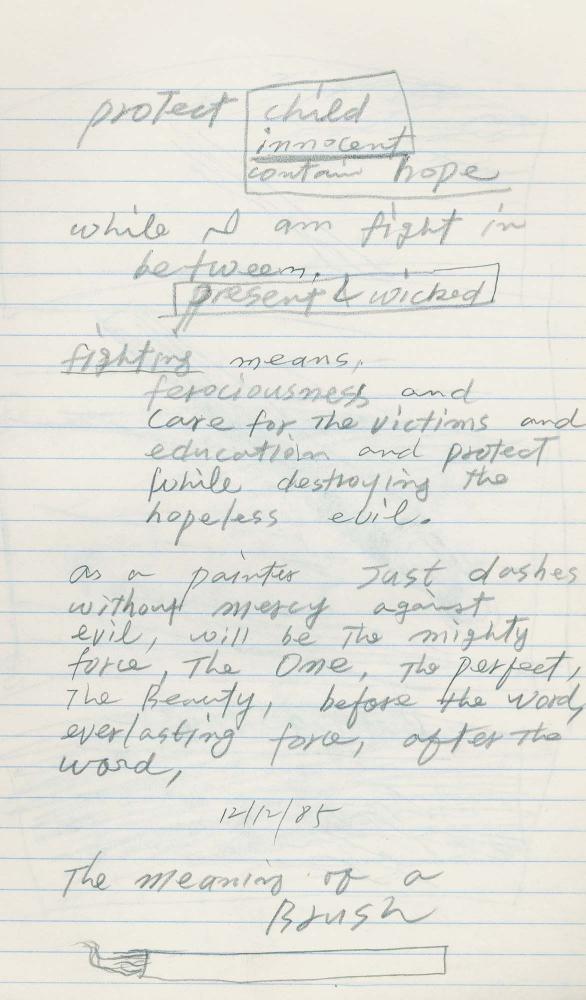 protect child
innocent
contain hope
while I am fight in
between,
present & wicked
fighting means,
ferociousness and
care for the victims and
education and protect
while destroying the
hopeless evil.
as a painter Just dashes
without mercy against
evil, will be the mighty
force, The One, The perfect,
The Beauty, before the word,
everlasting force, after the
word,
12/12/85
The meaning of a
Brush